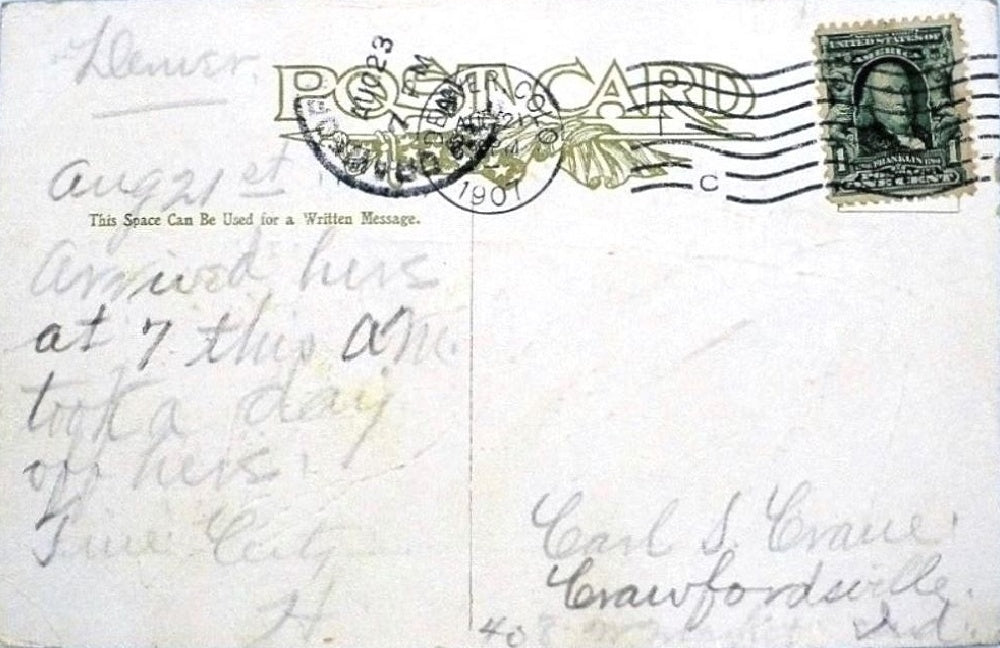 Denver.
POST CARD
AUG 23
7 PM
DENVER COLO.
AUG 21
PM
1907
C
UNITED STATES OF AMERICA
1 FRANKLIN 1
ONE CENT
Aug 21st
This Space Can Be Used for a Written Message.
Arrived here
at 7. this AM.
took a day
off here.
Fine City
H
Carl S. Crane.
Crawfordsville.
408 W Ind.